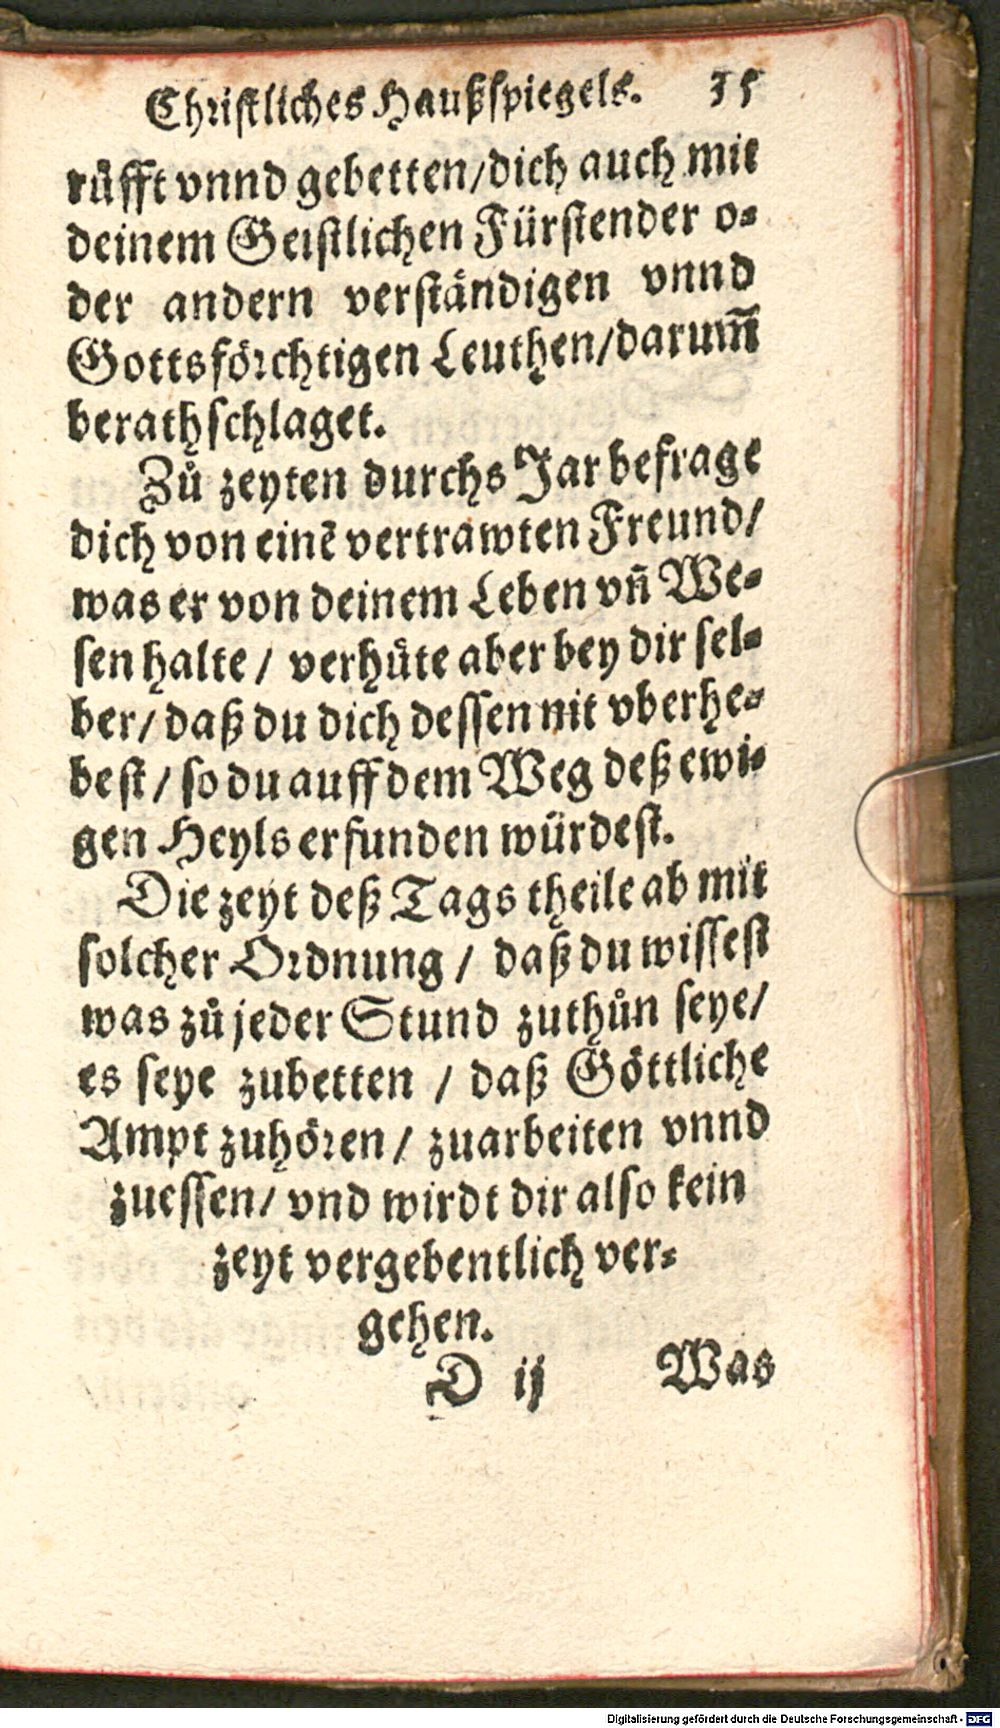 Christliches Haußspiegels. 35
růfft vnnd gebetten/dich auch mit
deinem Geistlichen Fürstender o-
der andern verständigen vnnd
Gottsförchtigen Leuthen/darum̃
berathschlaget.
Zů zeyten durchs Jar befrage
dich von einẽ vertrawten Freund/
was er von deinem Leben vñ We-
sen halte / verhüte aber bey dir sel-
ber/ daß du dich dessen nit vberhe-
best / so du auff dem Weg deß ewi-
gen Heyls erfunden würdest.
Die zeyt deß Tags theile ab mit
solcher Ordnung / daß du wissest
was zů jeder Stund zuthůn seye/
es seye zubetten / daß Göttliche
Ampt zuhören / zuarbeiten vnnd
zuessen/ vnd wirdt dir also kein
zeyt vergebentlich ver-
gehen.
D ij Was
Digitalisierung gefördert durch die Deutsche Forschungsgemeinschaft - DFG